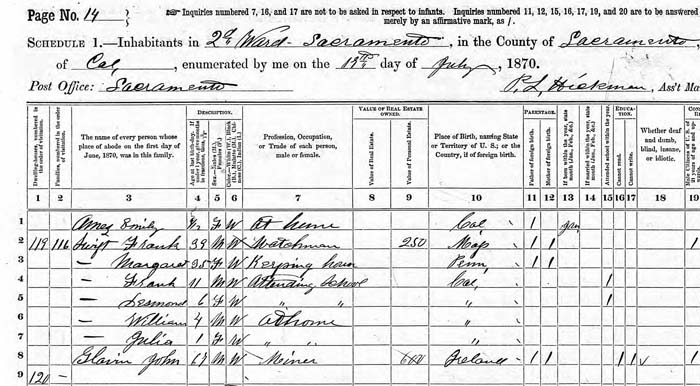 Page No. 14
☞ Inquiries numbered 7, 16, and 17 are not to be asked in respect to infants. Inquiries numbered 11, 12, 15, 16, 17, 19, and 20 are to be answered
merely by an affirmative mark, as /.
SCHEDULE 1.—Inhabitants in 2d Ward Sacramento, in the County of Sacramento,
of Cal, enumerated by me on the 13th day of July, 1870.
Post Office: Sacramento P. L. Hickman, Ass't Ma
DESCRIPTION. VALUE OF REAL ESTATE OWNED. PARENTAGE. EDUCA-TION.
Dwelling-houses, numbered in the order of visitation.
Families, numbered in the order of visitation.
The name of every person whose place of abode on the first day of June, 1870, was in this family.
Age at last birth-day.
Profession, Occupation, or Trade of each person, male or female.
Value of Real Estate.
Value of Personal Estate.
Place of Birth, naming State or Territory of U. S.; or the Country, if of foreign birth.
Father of foreign birth.
Mother of foreign birth.
If born within the year, state month (Jan., Feb., &c.)
If married within the year, state month (Jan., Feb., &c.)
Attended school within the year.
Cannot read.
Cannot write.
Whether deaf and dumb, blind, insane, or idiotic.
1 2 3 4 5 6 7 8 9 10 11 12 13 14 15 16 17 18 19
1 Emily F W At home Cal, / Jan
2 119 116 Swift Frank 39 M W Watchman 250 / / 1
3 — Margaret 35 F W Keeping house Penn, / /
4 — Frank 11 M W Attending School Cal, /
5 — Desmond 6 F W " " " /
6 — William 4 M W at home "
7 — Julia 1 F W "
8 Glavin John 67 M W Meiner 600 Ireland / / / / 1
9 120 —